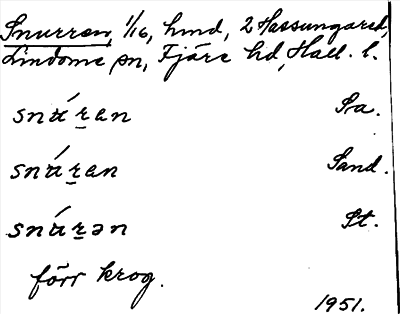 Snurran, 1/16, hmd, 2 Hassungared,
Lindome sn, Fjäre hd, Hall. l.
snʉ́r̠an Sa.
snʉ́r̠an Sand.
snʉ́r̠ən St.
förr krog.
1951.